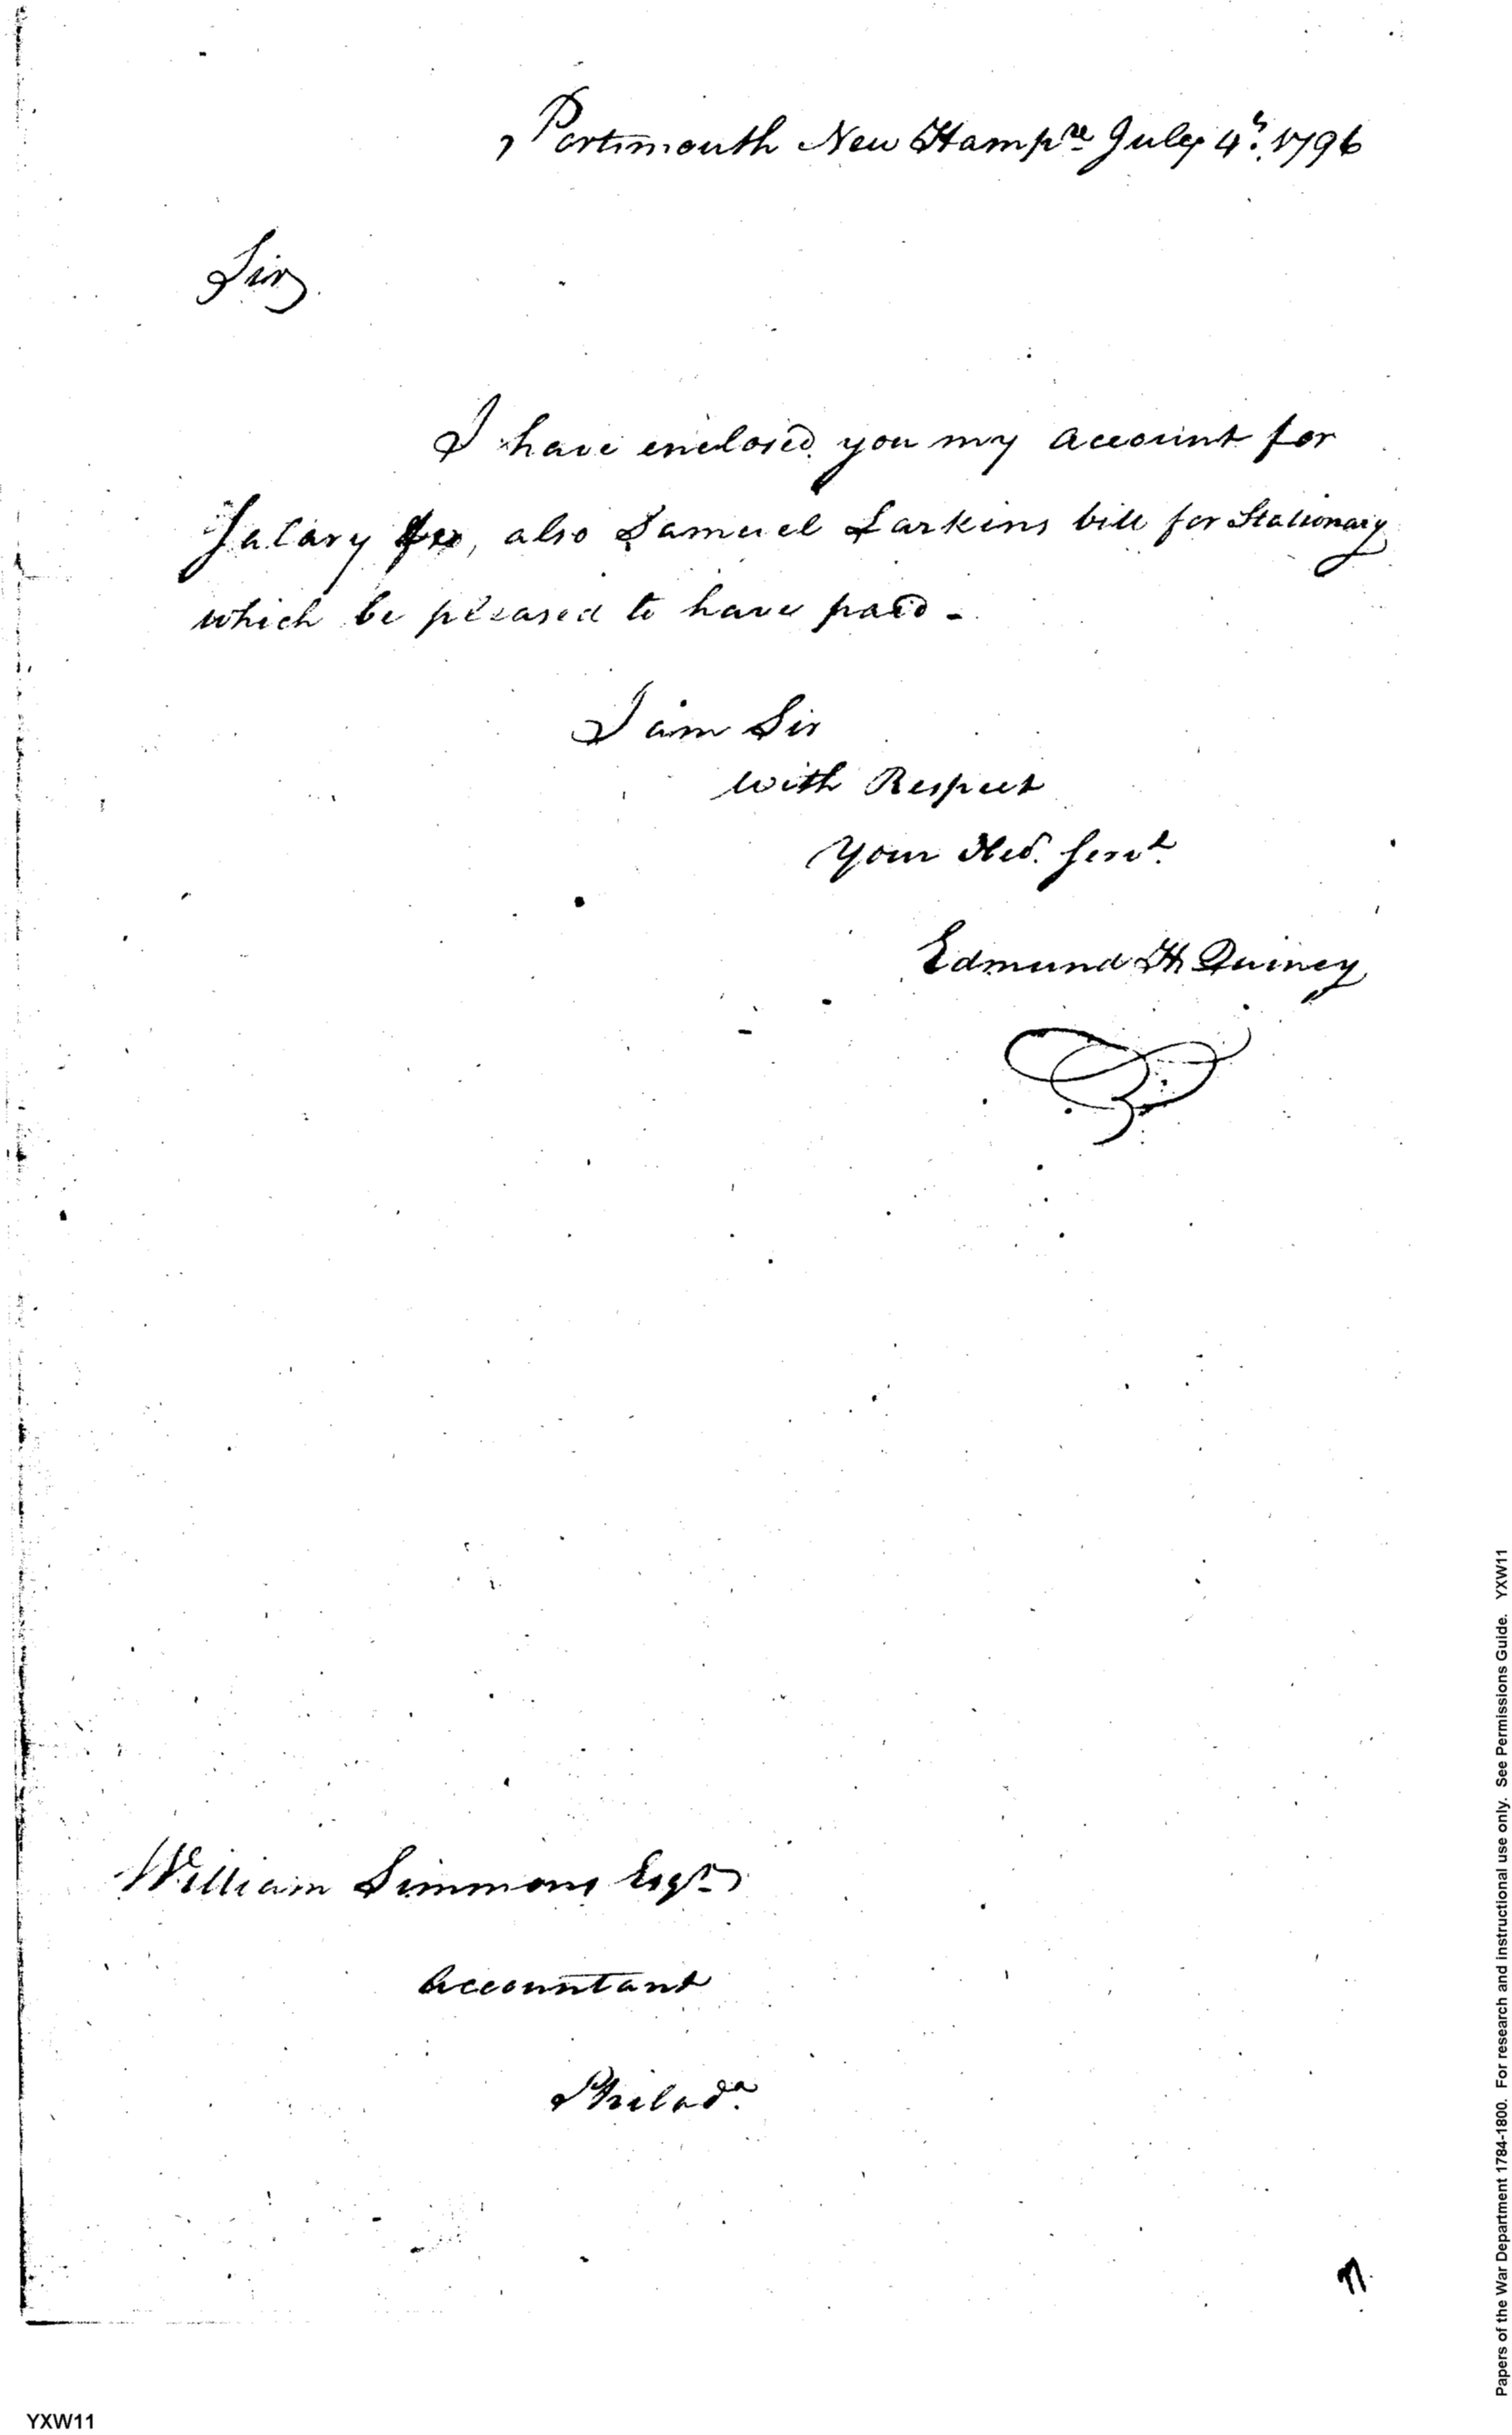 Portsmouth New Hampre July 4h. 1796
Sir
I have enclosed you my account for
Salary &c, also Samuel Larkins bill for Stationary
which be pleased to have paid -
I am Sir
with Respect
Your Obed. Servt.
Edmund H Quincy
William Simmons Esqr
Accountant
Philada.
Papers of the War Department 1784-1800. For research and instructional use only. See Permissions Guide. YXW11
YXW11